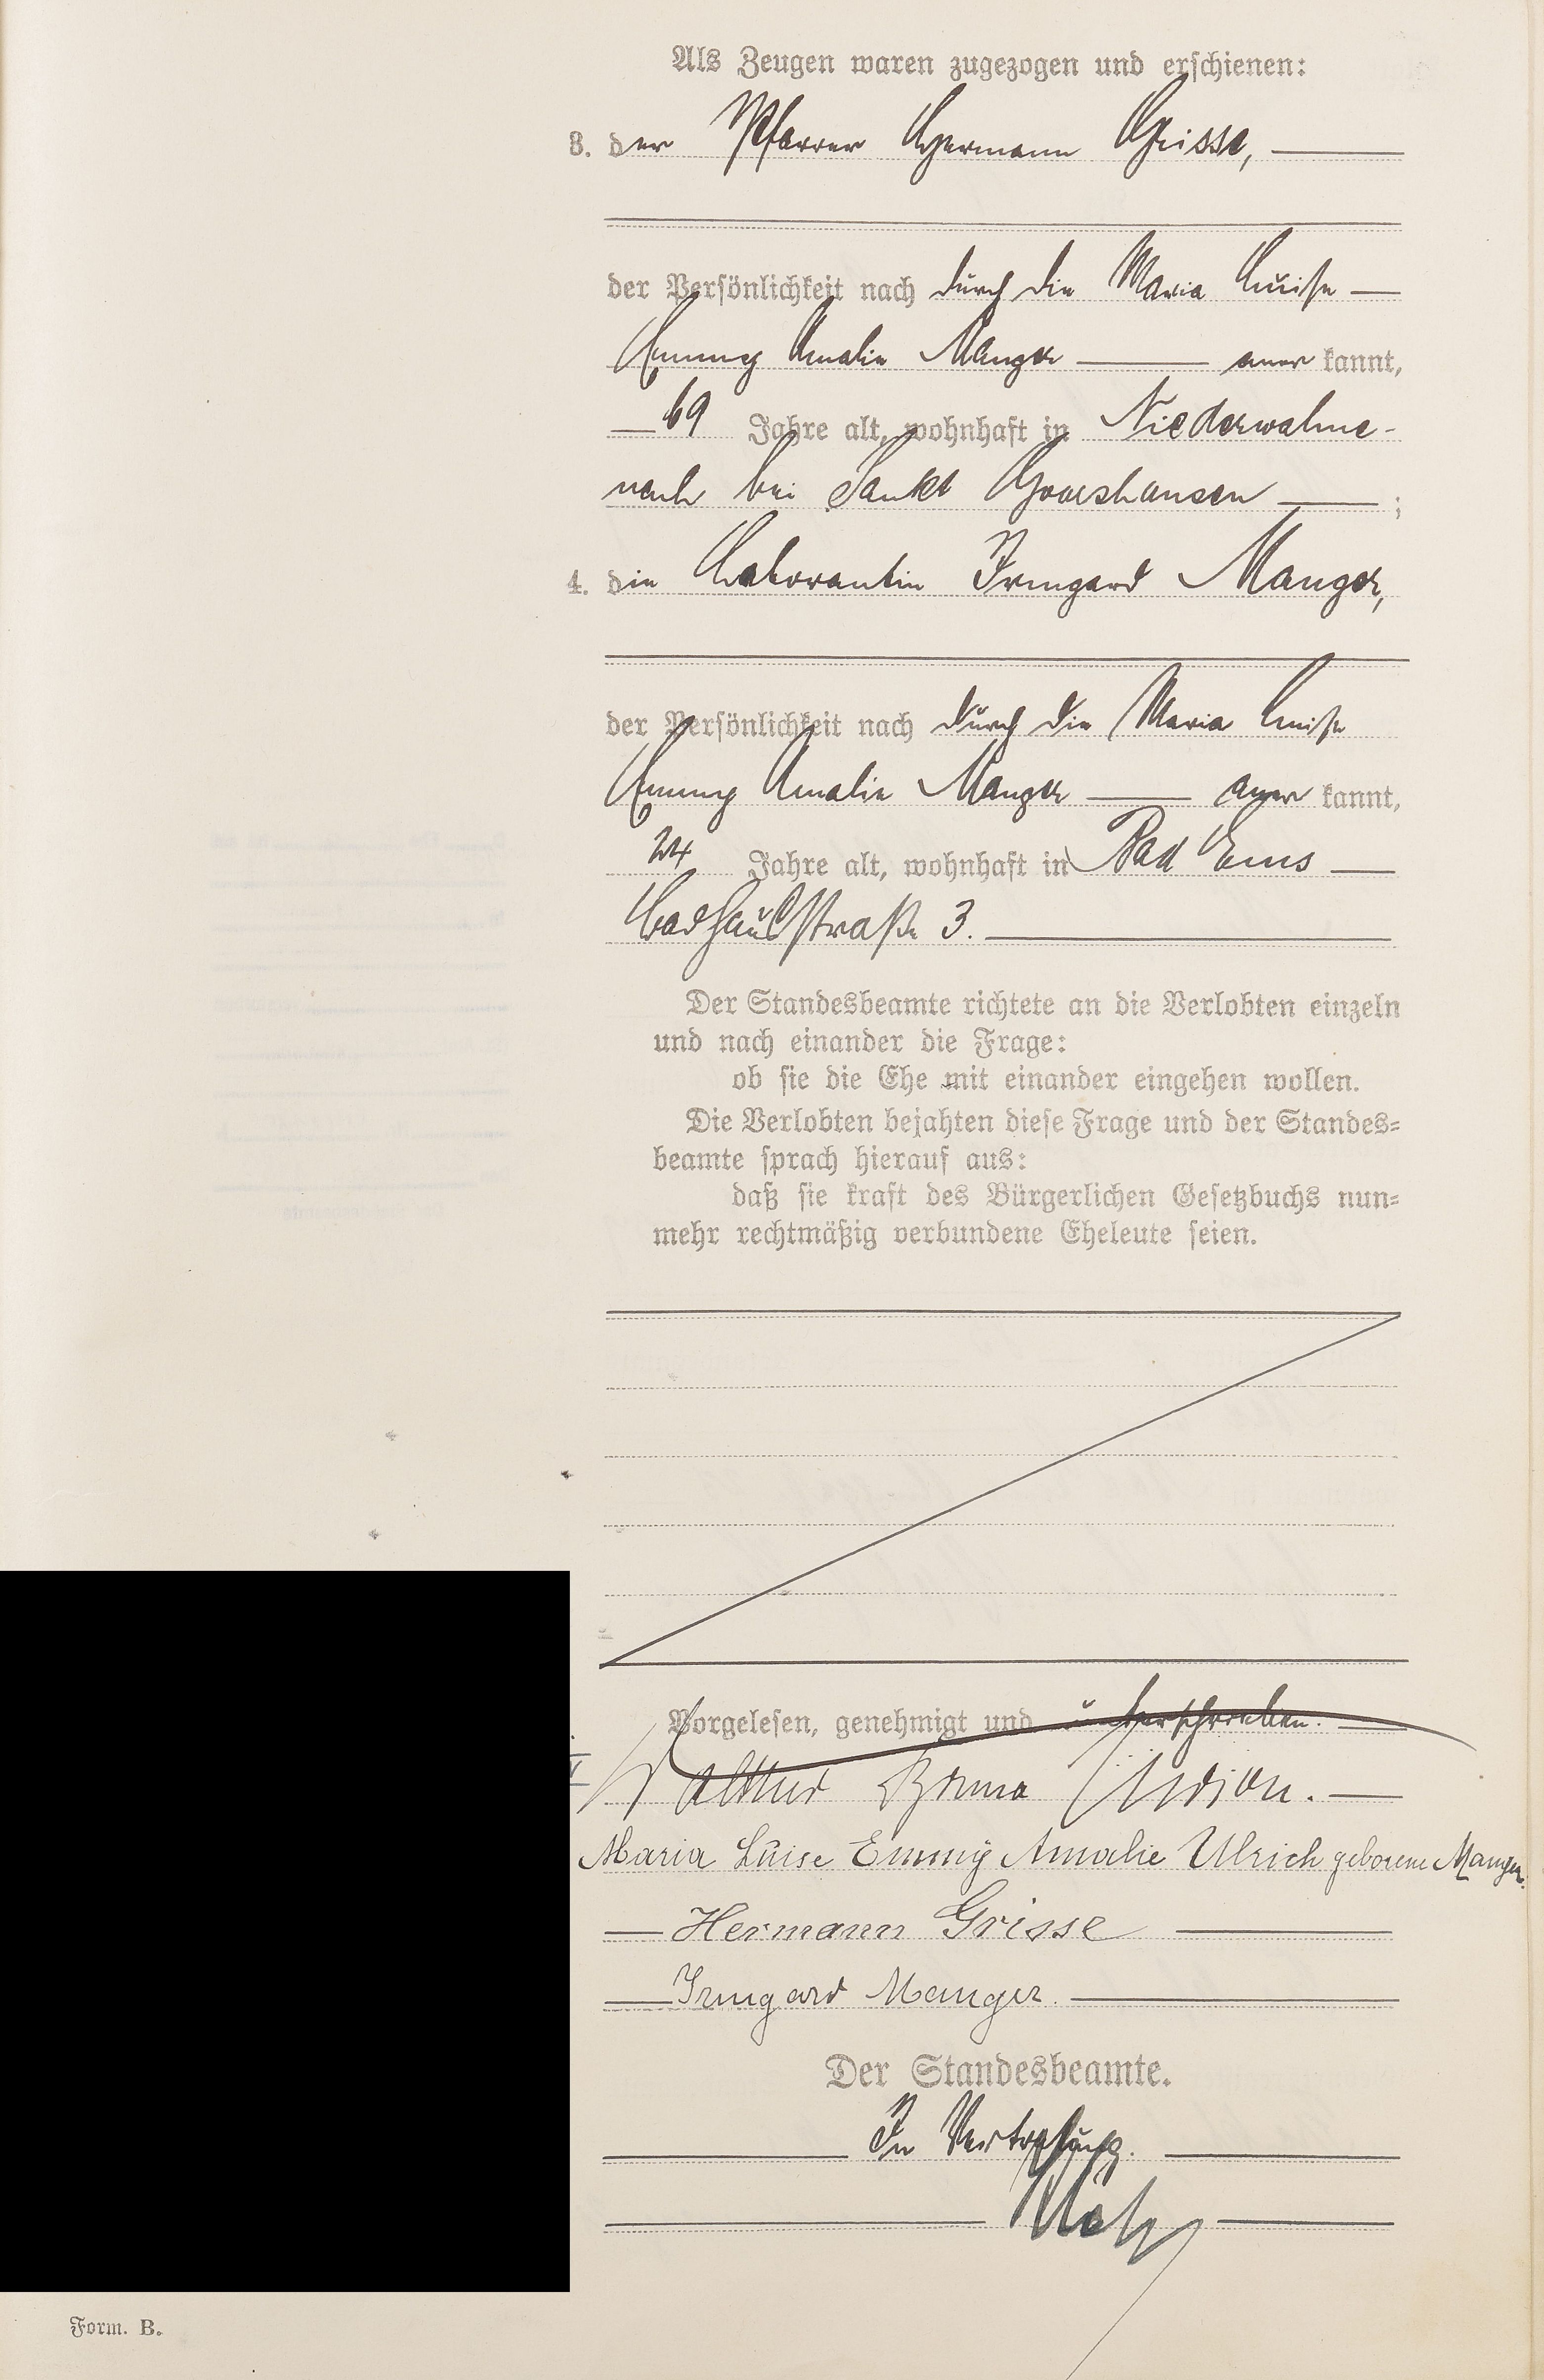 Als Zeugen waren zugezogen und erschienen:
3. der Pfarrer Hermann Grisse,
der Persönlichkeit nach durch die Maria Luise
Emmy Amalie Manger aner kannt,
69 Jahre alt, wohnhaft in Niederwalme-
nach bei Sankt Goarshausen ;
4. die Laborantin Irmgard Manger,
der Persönlichkeit nach durch die Maria Luise
Emmy Amalie Manger aner kannt,
24 Jahre alt, wohnhaft in Bad Ems
Badhausstraße 3.
Der Standesbeamte richtete an die Verlobten einzeln
und nach einander die Frage:
ob sie die Ehe mit einander eingehen wollen.
Die Verlobten bejahten diese Frage und der Standes=
beamte sprach hierauf aus:
daß sie kraft des Bürgerlichen Gesetzbuchs nun=
mehr rechtmäßig verbundene Eheleute seien.
Vorgelesen, genehmigt und unterschrieben.
Walther Bruno Ulrich.
Maria Luise Emmy Amalie Ulrich geborene Manger.
Hermann Grisse
Irmgard Manger.
Der Standesbeamte.
In Vertretung.
Form. B.